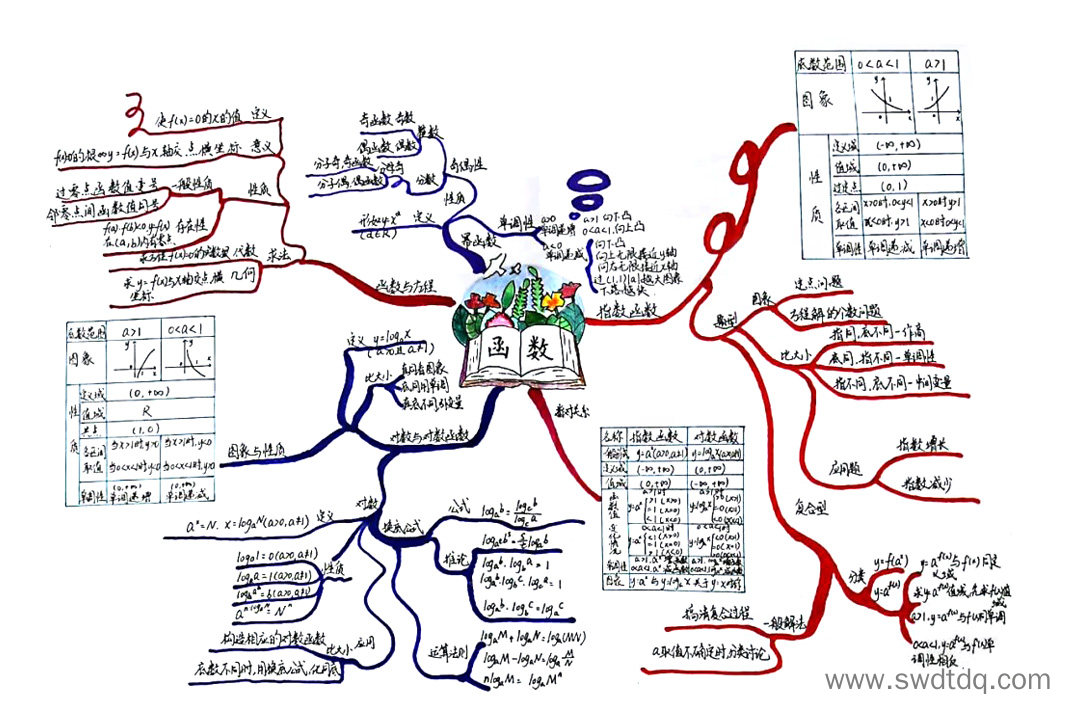 函数
函数与方程
使f(x)=0的x的值 定义
f(x)=0的根⇔y=f(x)与x轴交点横坐标 意义
过零点函数值变号
邻零点间函数值同号
一般性质
性质
f(a)·f(b)<0,
在(a,b)内有零点
存在性
求方程f(x)=0的
代数
求法
求y=f(x)与x轴交点横
坐标
几何
奇函数 奇数
偶函数 偶数
整数
分子奇,奇函数
分子偶,偶函数
分母奇
分数
奇偶性
性质
形如y=x^α
(α∈R)
定义
幂函数
单调性
α>0
单调递增
α>1 向下凸
0<α<1,向上凸
α<0
单调递减
向下凸
向上无限接近y轴
向右无限接近x轴
过(1,1)|α|越大图象
下落越快
指数函数
底数范围 0<a<1 a>1
图象
性质
定义域 (-∞,+∞)
值域 (0,+∞)
过定点 (0,1)
各区间取值
x>0时,0<y<1
x<0时,y>1
x>0时y>1
x<0时0<y<1
单调性 单调递减 单调递增
题型
图象
定点问题
方程解的个数问题
比大小
指同,底不同—作商
底同,指不同—单调性
指不同,底不同—中间变量
应用题
指数增长
指数减少
复合型
分类
y=f(a^x)
y=a^f(x)
y=a^f(x)与f(x)同定
义域
求y=a^f(x)值域,先求f(x)值
域
a>1,y=a^f(x)与f(x)同单调
0<a<1,y=a^f(x)与f(x)单
调性相反
一般解法
搞清复合过程
a取值不确定时,分类讨论
底数范围 a>1 0<a<1
图象
性质
定义域 (0,+∞)
值域 R
(1,0)
各区间取值
当x>1时,y>0
当0<x<1时,y<0
当x>1时,y<0
当0<x<1时,y>0
单调性
(0,+∞)
单调递增
(0,+∞)
单调递减
图象与性质
定义 y=log_a x
(a>0且a≠1)
比大小
底同用单调
对数与对数函数
对数
a^x=N, x=log_a N(a>0,a≠1) 定义
log_a 1=0(a>0,a≠1)
log_a a=1(a>0,a≠1)
log_a a^b=b(a>0,a≠1)
a^(log_a N)=N
性质
构造相应的对数函数
底数不同时,用换底公式,化同底
比大小 应用
换底公式
公式 log_a b=log_c b/log_c a
推论
log_a b·log_b a=1
log_a b·log_b c·log_c a=1
log_a b·log_b c=log_a c
运算法则
log_a M+log_a N=log_a(MN)
log_a M-log_a N=log_a M/N
nlog_a M=log_a M^n
名称 指数函数 对数函数
y=a^x(a>0,a≠1)
定义域 (-∞,+∞) (0,+∞)
值域 (0,+∞) (-∞,+∞)
函数值变化情况
单调性
y=a^x与y=log_a x关于y=x对称
www.swdtdq.com